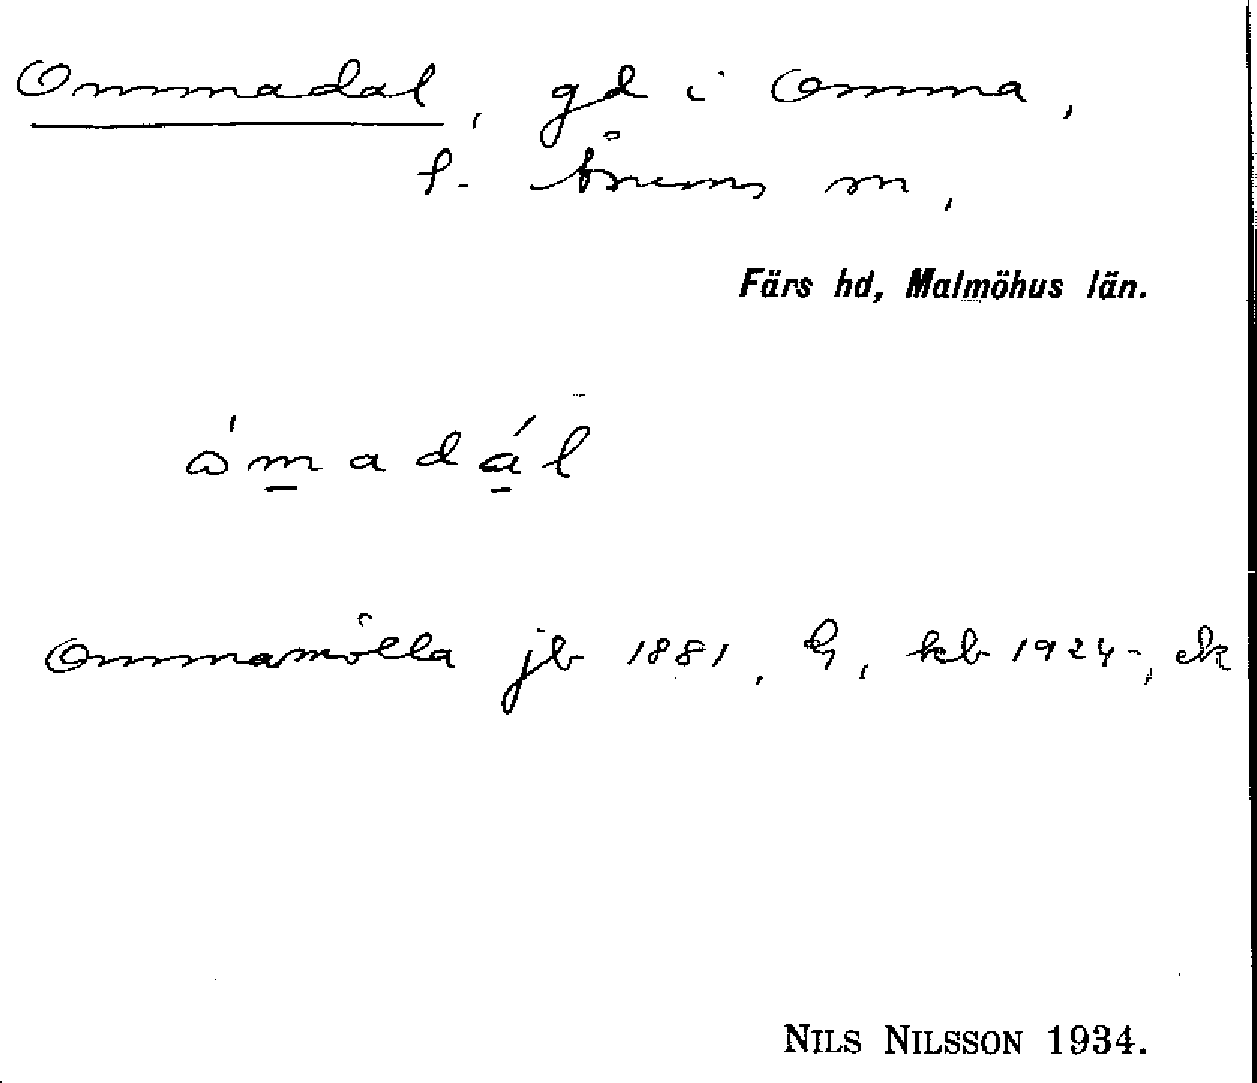 Ommadal, gd i Omma,
f. Brunns m,
Färs hd, Malmöhus län.
ómadál
Ommamölla jb 1881, G, kb 1924-, ek
NILS NILSSON 1934.